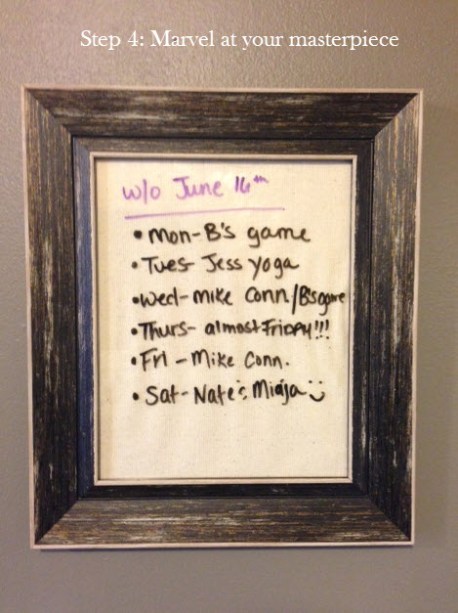 Step 4: Marvel at your masterpiece
w/o June 16th
• Mon-B's game
• Tues- Jess yoga
• Wed-mike Conn/B's game
• Thurs- almost FRIDAY!!!
• Fri - Mike Conn.
• Sat-Nate & Midja